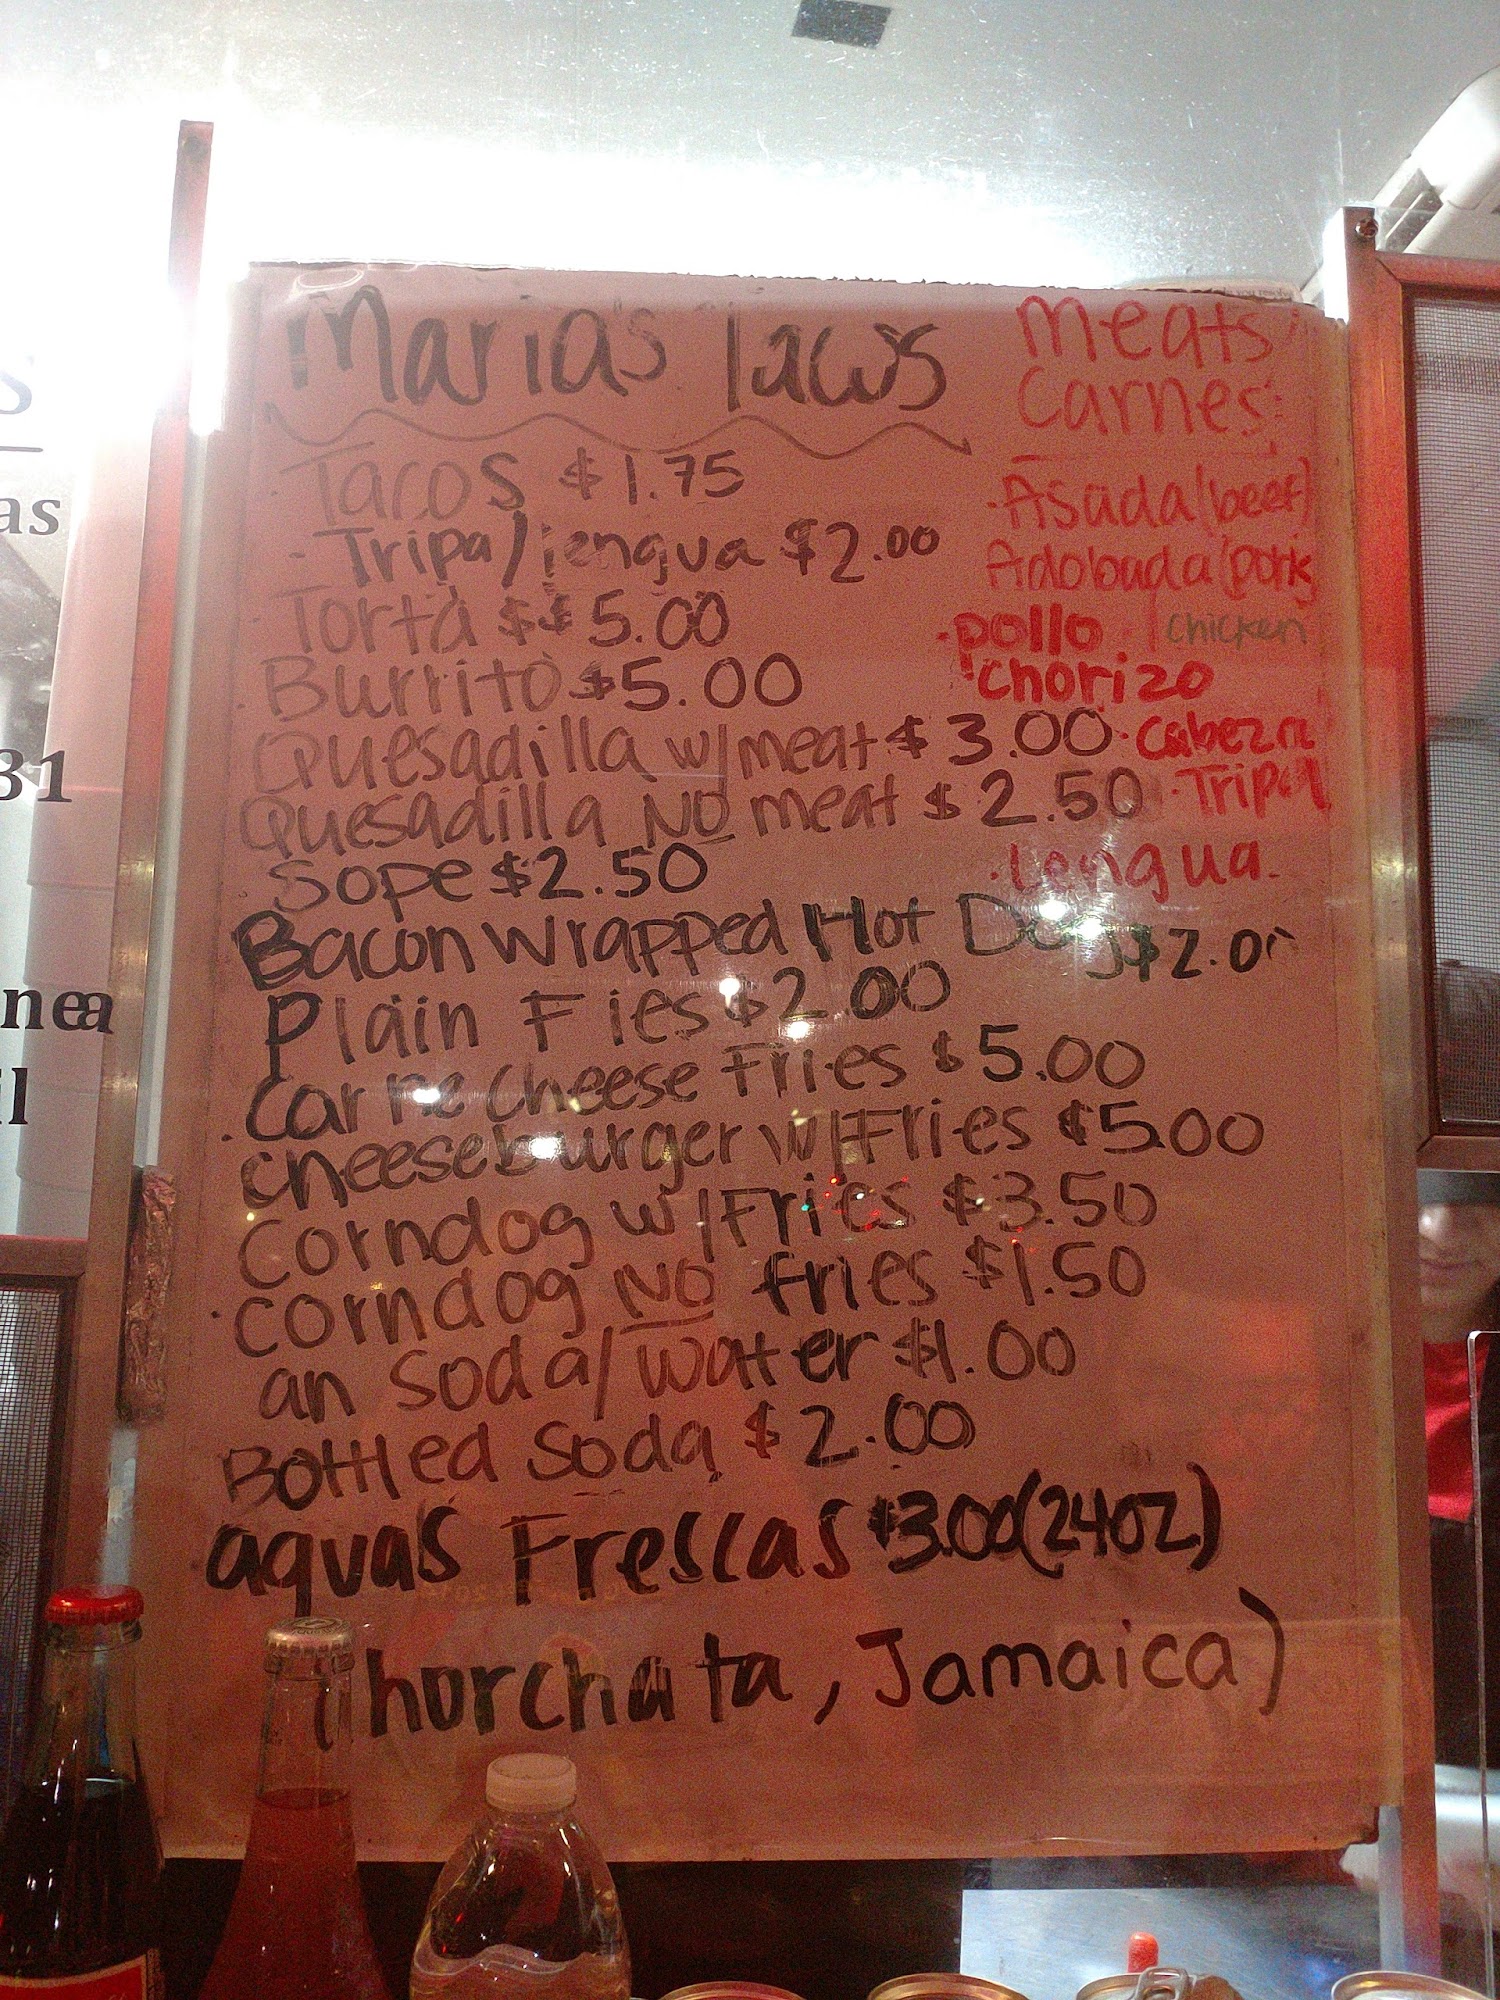 Maria's Tacos
Tacos $1.75
- Tripa/lengua $2.00
Torta $$5.00
Burrito $5.00
Quesadilla w/meat $3.00
Quesadilla NO meat $2.50
Sope $2.50
Bacon Wrapped Hot Dog $2.00
Plain F ies $2.00
Carne Cheese Fries $5.00
Cheeseburger w/Fries $5.00
Corndog w/Fries $3.50
Corndog NO fries $1.50
an Soda/water $1.00
Bottled Soda $2.00
aguas Frescas $3.00 (24oz)
(horchata, Jamaica)
Meats/
Carnes:
·Asada(beef)
Adobada(pork
·pollo | chicken
·Chorizo
·Cabeza
·Tripa
·Lengua
s
as
31
nea
il